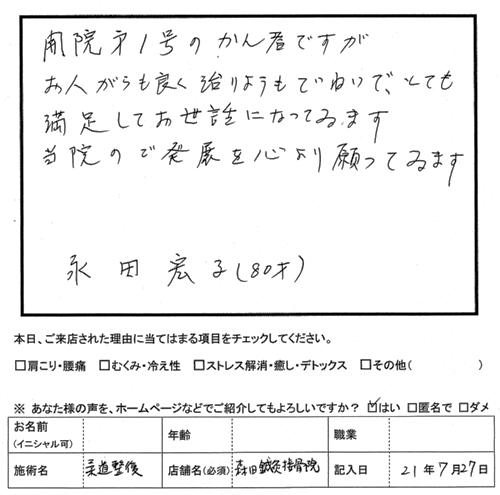 開院第1号のかん者ですが
お人がらも良く治りようもていねいで、とても
満足してお世話になってゐます
当院のご発展を心より願ってゐます
永田宏子(80才)
本日、ご来店された理由に当てはまる項目をチェックしてください。
□肩こり・腰痛 □むくみ・冷え性 □ストレス解消・癒し・デトックス □その他( )
※ あなた様の声を、ホームページなどでご紹介してもよろしいですか？ ☑はい □匿名で □ダメ
お名前 (イニシャル可) 年齢 職業
施術名 柔道整復 店舗名(必須) 森田鍼灸接骨院 記入日 21年7月27日